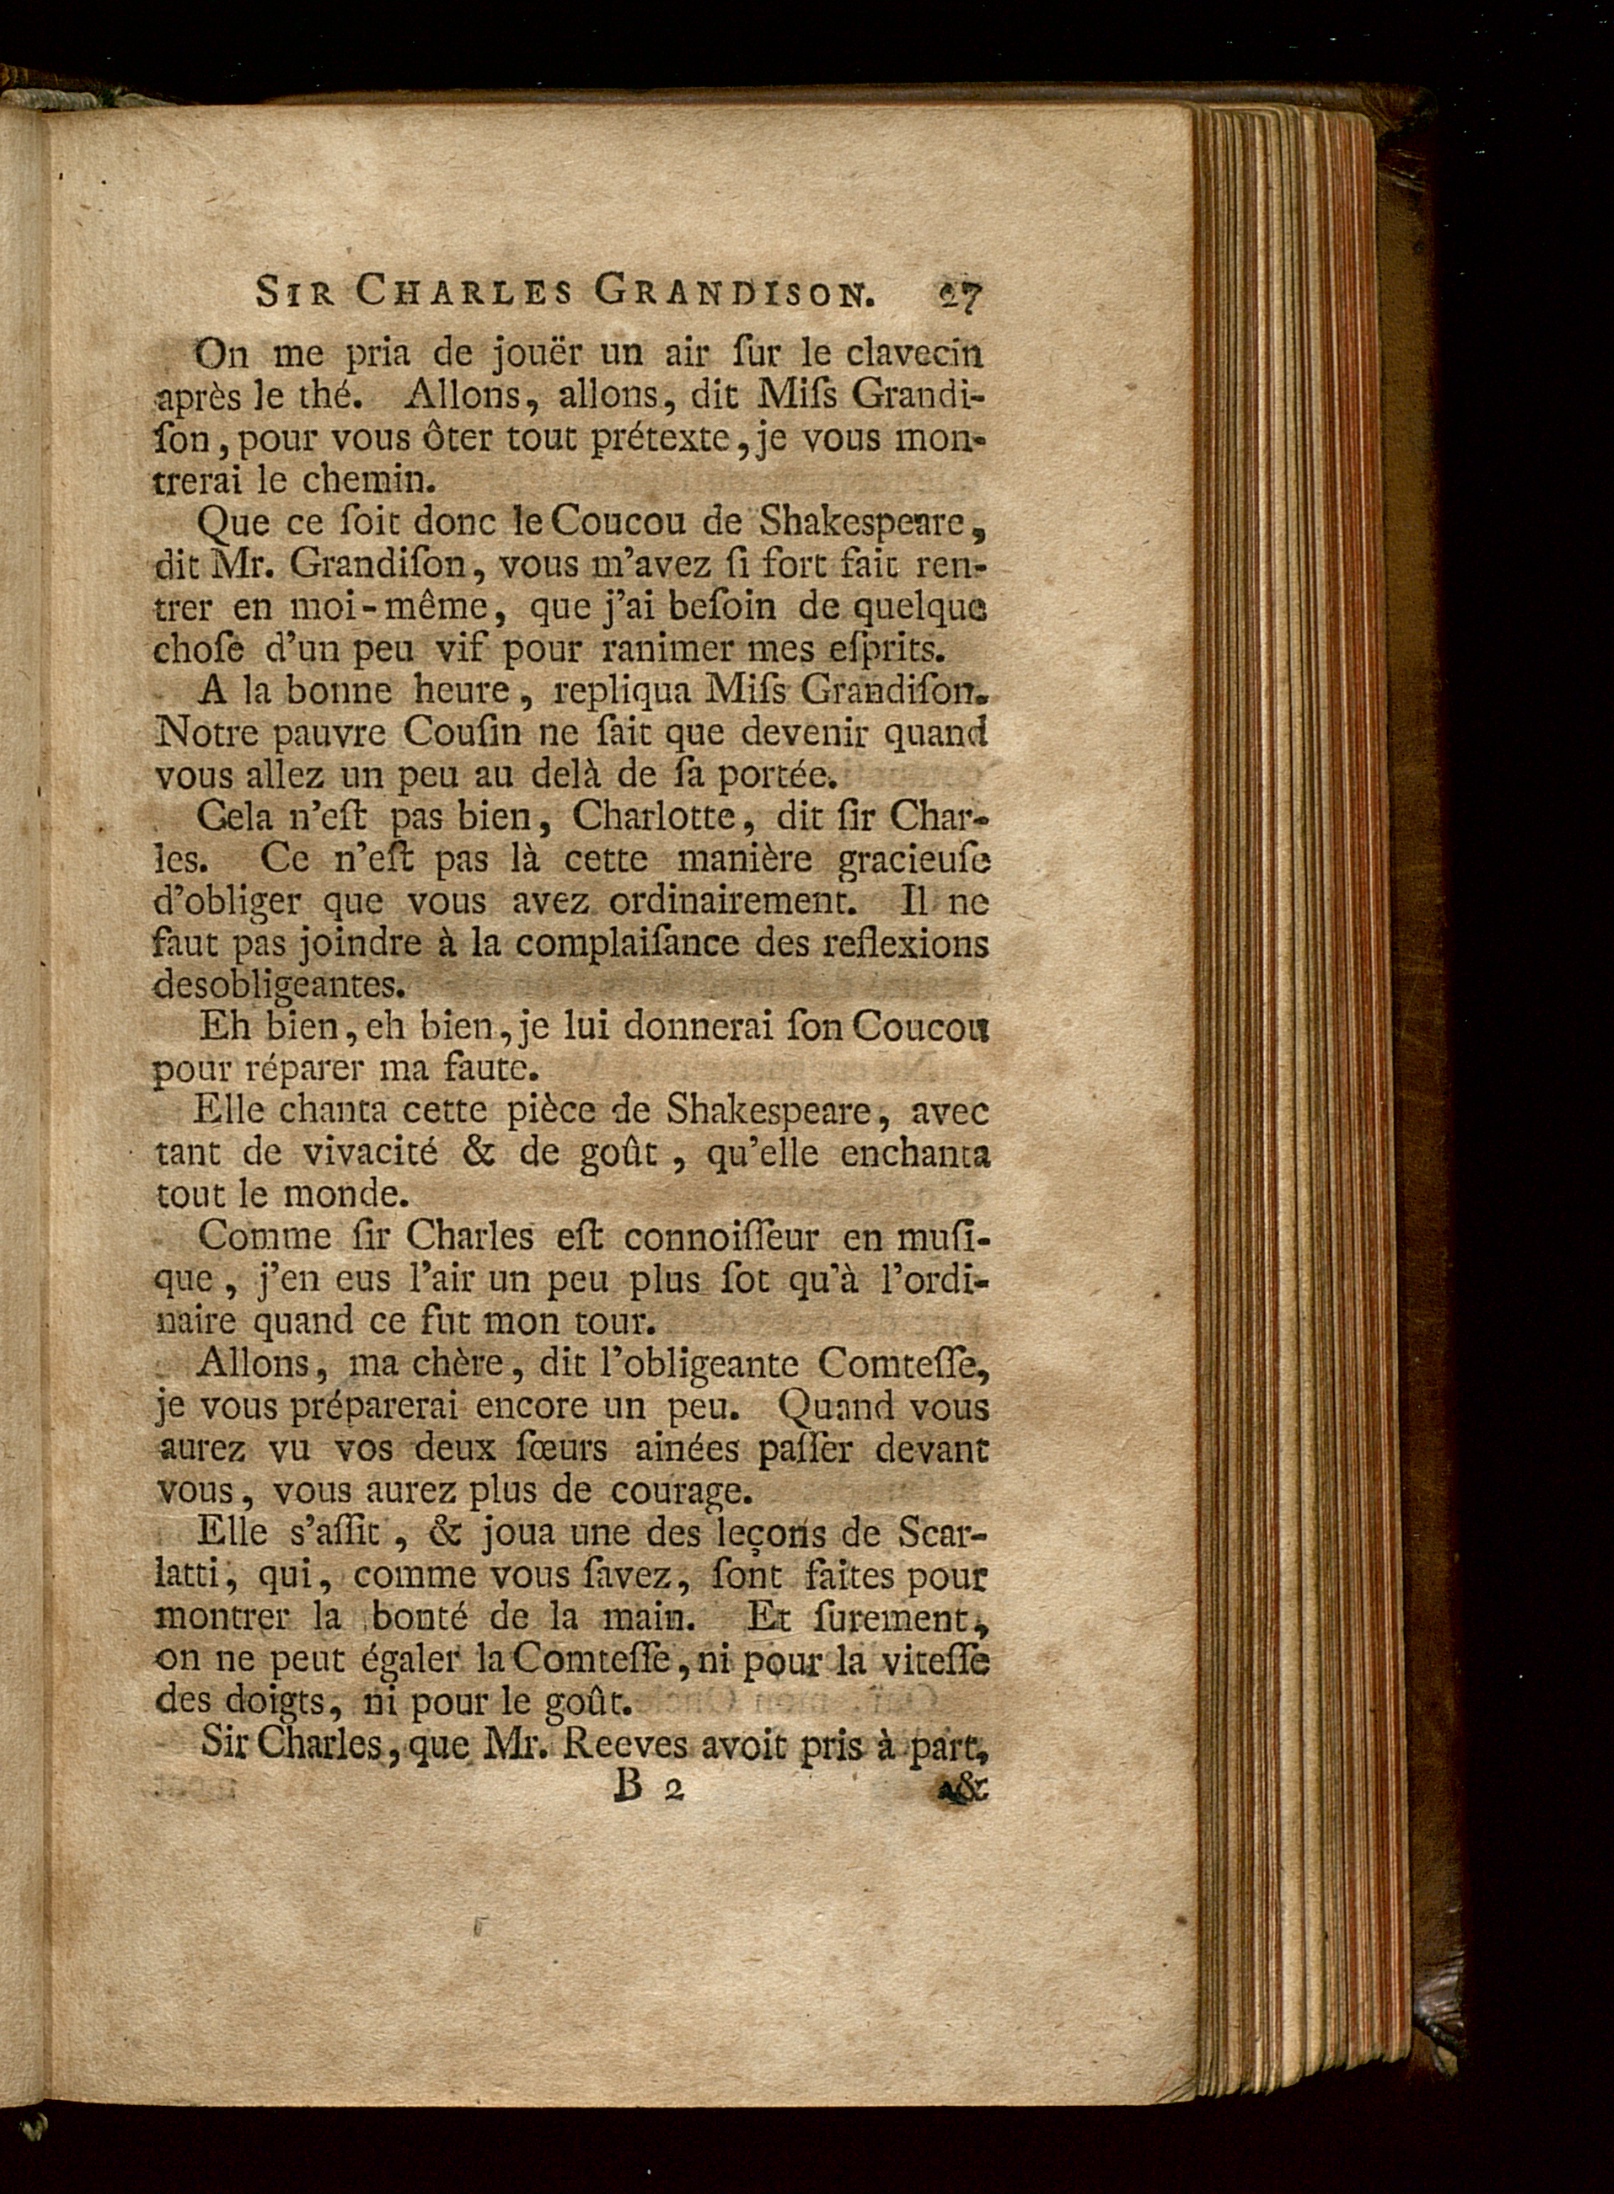 SIR CHARLES GRANDISON. 27
On me pria de jouër un air ſur le clavecin
après le thé. Allons, allons, dit Miſs Grandi-
ſon, pour vous ôter tout prétexte, je vous mon-
trerai le chemin.
Que ce ſoit donc le Coucou de Shakespeare,
dit Mr. Grandiſon, vous m'avez ſi fort fait ren-
trer en moi-même, que j'ai beſoin de quelque
choſe d'un peu vif pour ranimer mes eſprits.
A la bonne heure, repliqua Miſs Grandiſon.
Notre pauvre Couſin ne ſait que devenir quand
vous allez un peu au delà de ſa portée.
Cela n'eſt pas bien, Charlotte, dit ſir Char-
les. Ce n'eſt pas là cette manière gracieuſe
d'obliger que vous avez ordinairement. Il ne
faut pas joindre à la complaiſance des reflexions
desobligeantes.
Eh bien, eh bien, je lui donnerai ſon Coucou
pour réparer ma faute.
Elle chanta cette pièce de Shakespeare, avec
tant de vivacité & de goût, qu'elle enchanta
tout le monde.
Comme ſir Charles eſt connoiſſeur en muſi-
que, j'en eus l'air un peu plus ſot qu'à l'ordi-
naire quand ce fut mon tour.
Allons, ma chère, dit l'obligeante Comteſſe,
je vous préparerai encore un peu. Quand vous
aurez vu vos deux ſœurs ainées paſſer devant
vous, vous aurez plus de courage.
Elle s'aſſit, & joua une des leçons de Scar-
latti, qui, comme vous ſavez, ſont faites pour
montrer la bonté de la main. Et ſurement,
on ne peut égaler la Comteſſe, ni pour la viteſſe
des doigts, ni pour le goût.
Sir Charles, que Mr. Reeves avoit pris à part,
B 2 &